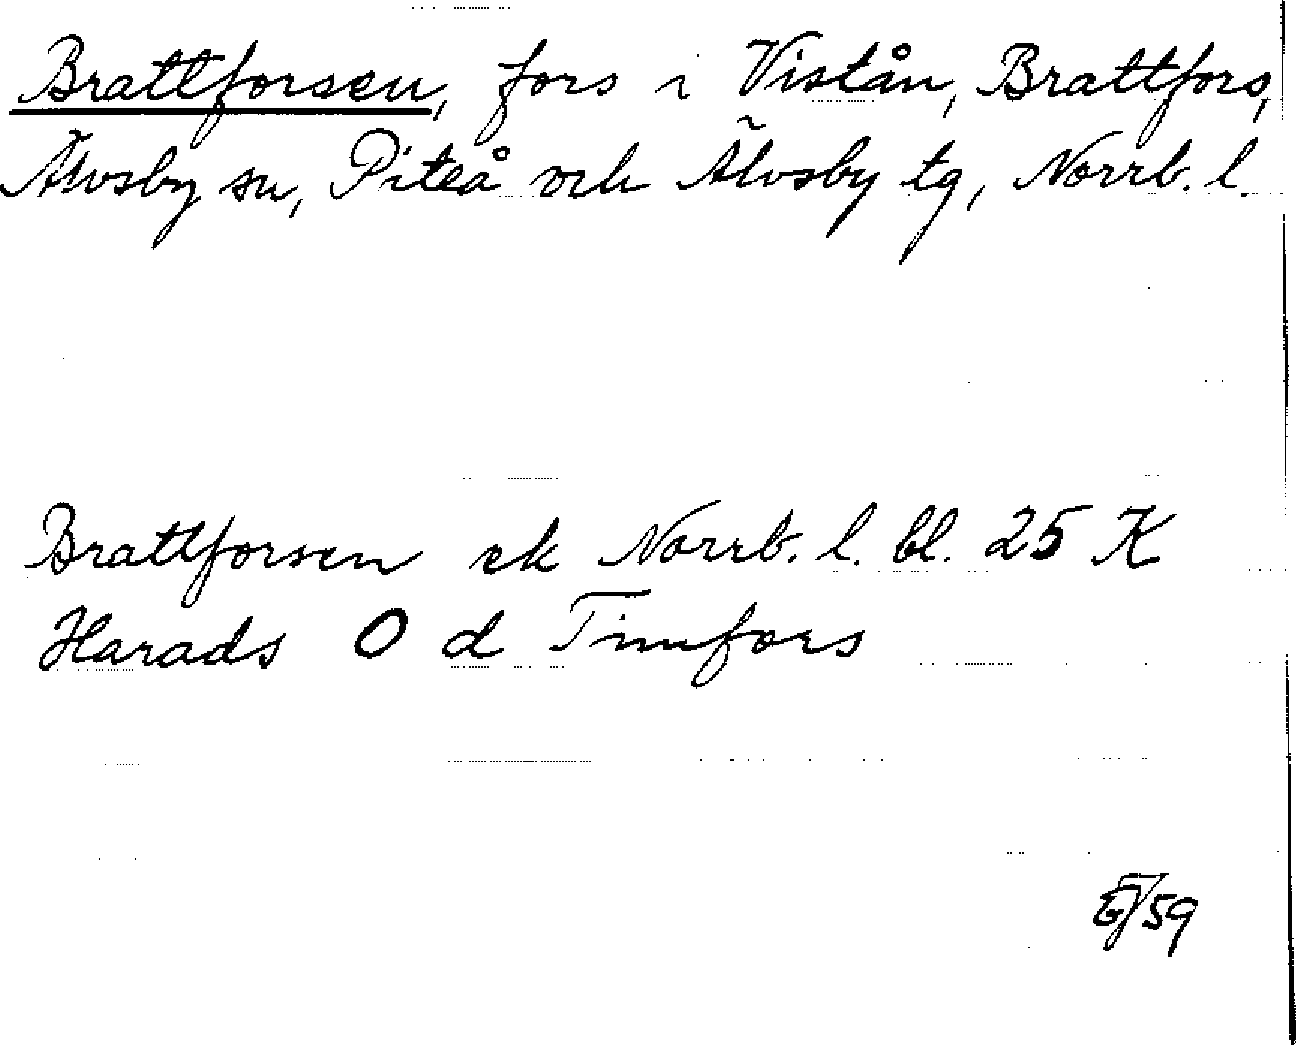 Brattforsen, fors i Vistån, Brattfors,
Älvsby sn, Piteå och Älvsby tg, Norrb. l.
Brattforsen ek Norrb. l. bl. 25 K
Harads O d Timfors
/59